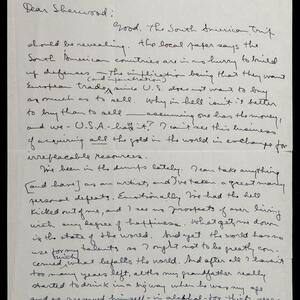 Dear Sherwood:
Good. The South American trip
should be revealing. The local paper says the
South American countries are in no hurry to build
up defenses — The implication being that they want
European trade, since U.S. does not want to buy
as much as to sell. Why in hell isn't it better
to buy than to sell — assuming one has the money,
and we - U.S.A. - has it? I can't see this business
of acquiring all the gold in the world in exchange for
irreplaceable resources.
I've been in the dumps lately. I can take anything
[and have] as an artist, and I've taken a great many
personal defeats. Emotionally I've had the hell
kicked out of me, and I see no prospects of ever living
with any degree of happiness. What gets me down
is the state of the world. And yet the world has no
use for my talents so I ought not to be greatly con-
cerned with what befalls the world. And after all I haven't
too many years left, altho my grandfather really
started to drink in a big way when he was my age
and as preserved himself in alcohol for